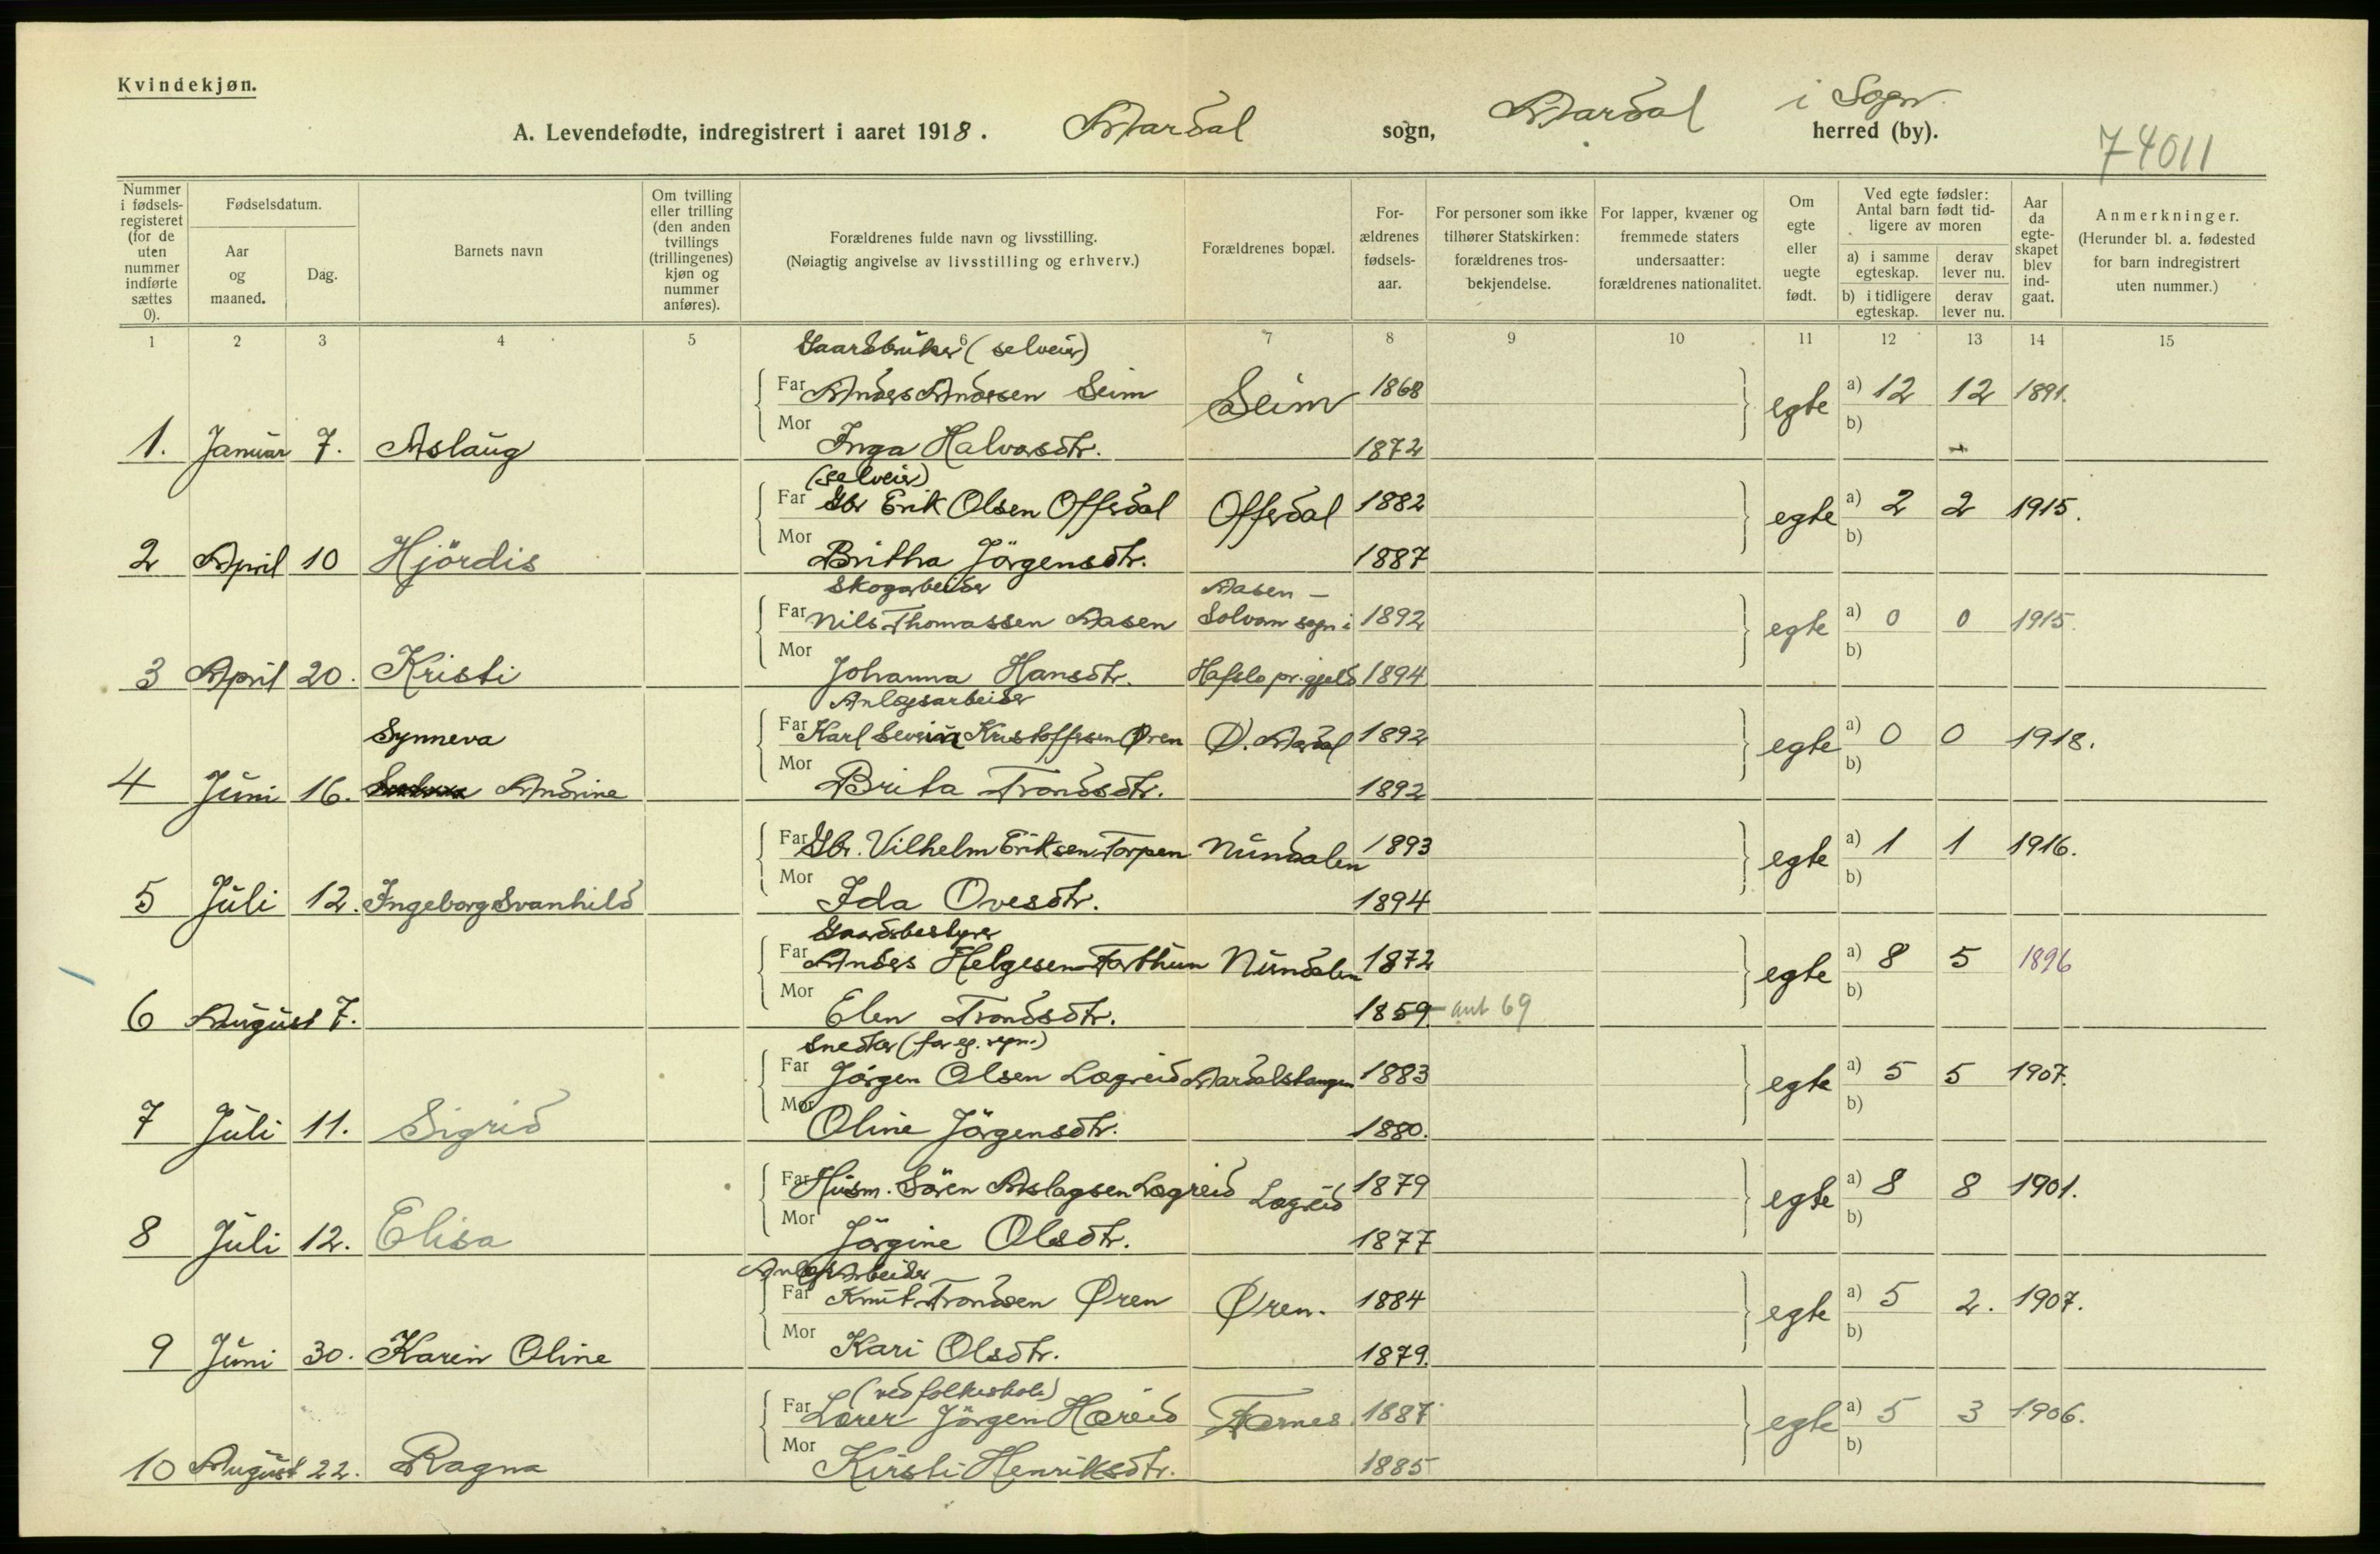 Kvindekjøn.
A. Levendefødte, indregistrert i aaret 1918. Aardal sogn, Aardal i Sogn herred (by).
74011
Nummer i fødselsregisteret (for de uten nummer indførte sættes 0).
Fødselsdatum.
Aar og maaned.
Dag.
Barnets navn
Om tvilling eller trilling (den anden tvillings (trillingenes) kjøn og nummer anføres).
Forældrenes fulde navn og livsstilling.
(Nøiagtig angivelse av livsstilling og erhverv.)
Forældrenes bopæl.
Forældrenes fødselsaar.
For personer som ikke tilhører Statskirken: forældrenes trosbekjendelse.
For lapper, kvæner og fremmede staters undersaatter: forældrenes nationalitet.
Om egte eller uegte født.
Ved egte fødsler: Antal barn født tidligere av moren
a) i samme egteskap. derav lever nu.
b) i tidligere egteskap. derav lever nu.
Aar da egteskapet blev indgaat.
Anmerkninger.
(Herunder bl. a. fødested for barn indregistrert uten nummer.)
1 2 3 4 5 6 7 8 9 10 11 12 13 14 15
Gaardbruker (selveier)
Far Anders Andersen Seim Seim 1868 egte a) 12 12 1891.
b)
1. Januar 7. Aslaug Mor Inga Halvorsdtr. 1872
(selveier)
Far Gbr Erik Olsen Offerdal Offerdal 1882 egte a) 2 2 1915.
b)
2 April 10 Hjördis Mor Britha Jörgensdtr. 1887
Skogarbeider Aasen –
Far Nils Thomassen Aasen Solvorn sogn i 1892 egte a) 0 0 1915.
b)
3 April 20. Kristi Mor Johanna Hansdtr. Hafslo pr.gjeld 1894
Anlægsarbeider
Synneva Far Karl Severin Kristoffersen Øren Ø. Aardal 1892 egte a) 0 0 1918.
b)
4 Juni 16. Andrine Mor Brita Trondsdtr. 1892
Far Gbr. Vilhelm Eriksen Torpen Nundalen 1893 egte a) 1 1 1916.
b)
5 Juli 12. Ingeborg Svanhild Mor Ida Ovesdtr. 1894
Gaardsbestyrer
Far Anders Helgesen Forthun Nundalen 1872 egte a) 8 5 1896
b)
6 August 7. Mor Elen Trondsdtr. 1859 ant 69
Snedker (for eg. regn.)
Far Jörgen Olsen Lægreid Aardalstangen 1883 egte a) 5 5 1907.
b)
7 Juli 11. Sigrid Mor Oline Jörgensdtr. 1880.
Far Husm. Sören Aslagsen Lægreid Lægreid 1879 egte a) 8 8 1901.
b)
8 Juli 12. Elisa Mor Jörgine Olsdtr. 1877
Anlægsarbeider
Far Knut Trondsen Øren Øren. 1884 egte a) 5 2. 1907.
b)
9 Juni 30. Karen Oline Mor Kari Olsdtr. 1879.
(ved folkeskole)
Far Lærer Jörgen Hæreid Farnes. 1887 egte a) 5 3 1906.
b)
10 August 22. Ragna Mor Kirsti Henriksdtr. 1885